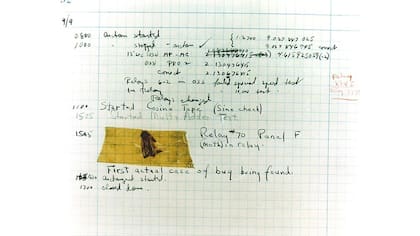 9/9
0800 antan started
1000 " stopped - antan ✓ 1.2700 9.037 847 025
9.037 846 995 correct
MP - MC 4.615925059(-2)
033 PRO 2 2.130476415
correct 2.130676415
Relays 6-2 in 033 failed special speed test
in relay " test
Relays changed
1100 Started Cosine Tape (Sine check)
1525 Started Multi Adder Test
1545 Relay #70 Panel F
(moth) in relay.
First actual case of bug being found.
antangent started.
1700 closed down.
Relay